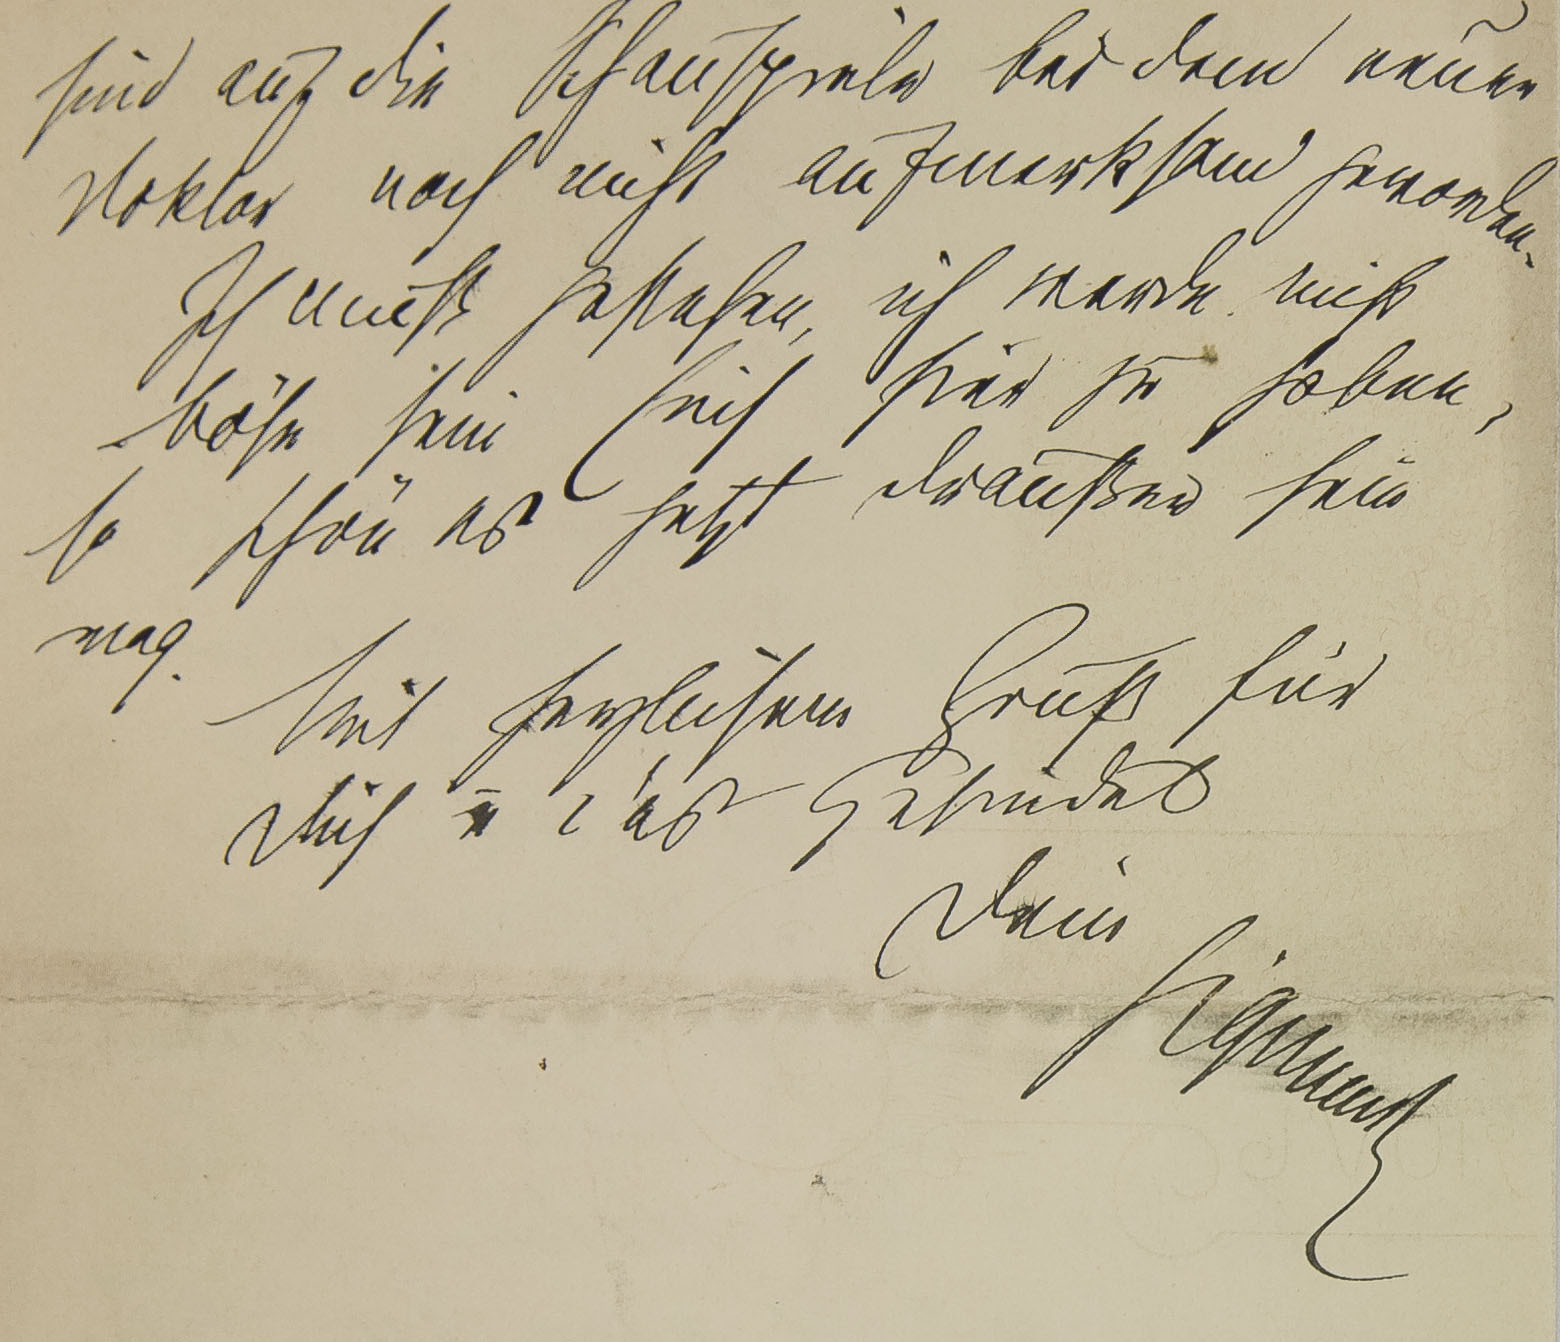 sind auf die Schauspiele bei dem neuen
Doktor noch nicht aufmerksam geworden.
Ich muß gestehen, ich werde nicht
böse sein Euch hier zu haben,
so schön es jetzt draußen sein
mag.
Mit herzlichem Gruß für
Dich u das Gesindel
Dein
Sigmund